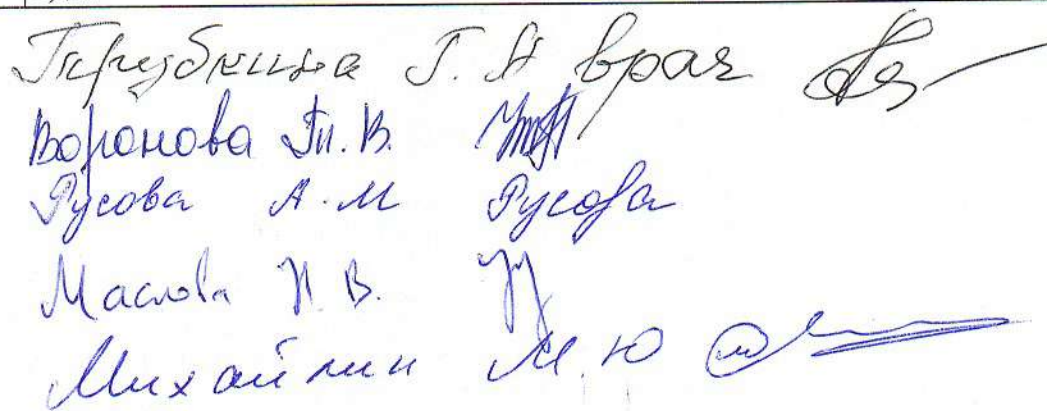 Г. А врач
Воронова Т. В.
Русова А. М Русова
Маслова Н В.
Михайлин М. Ю